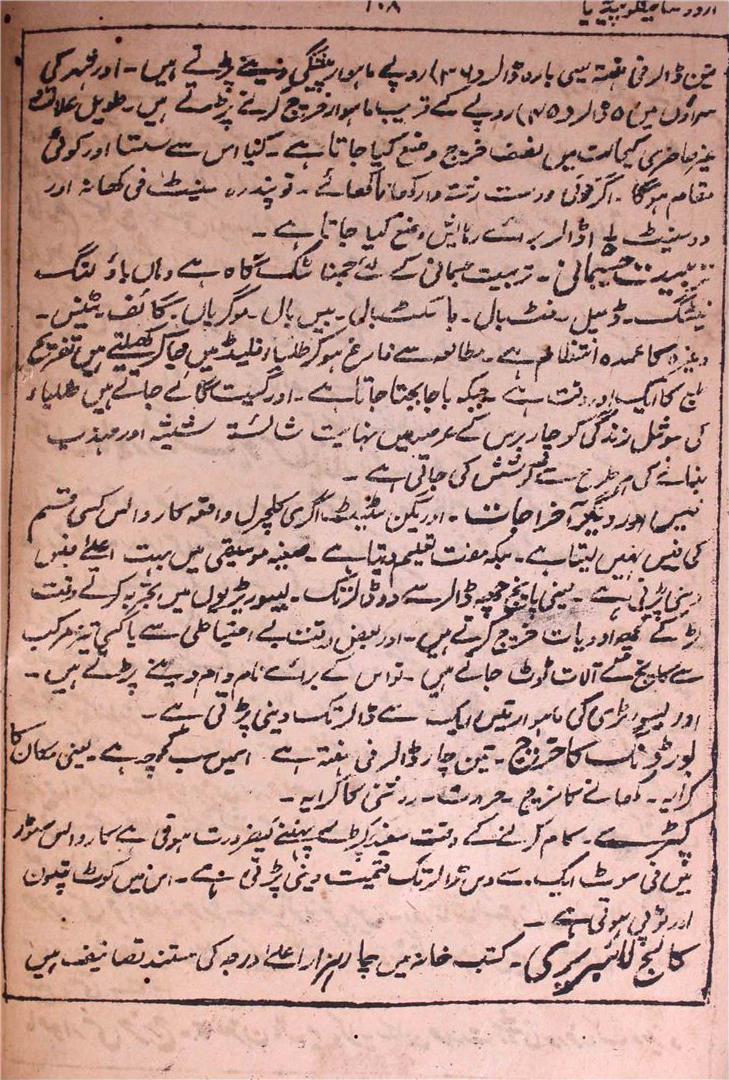 ۱۰۸
تین ڈالر فی ہفتہ یعنی بارہ ڈالر (۳۶) روپے ماہوار پیشگی دینے پڑتے ہیں۔ اور شہر کی
سراؤں میں ۱۵ ڈالر (۴۵) روپے کے قریب ماہوار خرچ کرنے پڑتے ہیں۔ طویل علالت و
غیر حاضری کیحالت میں نصف خرچ وضع کیا جاتا ہے۔ کیا اس سے سستا اور کوئی
مقام ہوگا۔ اگر کوئی دوست رشتہ دار کھانا کھائے۔ تو پندرہ سینٹ فی کھانہ اور
دو سینٹ ڈالر برائے رہائش وضع کیا جاتا ہے۔
تربیت جسمانی۔ تربیت جسمانی کے لئے جمناسٹک گاہ ہے وہاں باؤلنگ
ڈمبل۔ فٹ بال۔ باسکٹ بال۔ بیس بال۔ موگریاں۔ ٹینس۔
وغیرہ کا عمدہ انتظام ہے۔ مطالعہ سے فارغ ہوکر طلباء فیلڈ میں جاکر کھیلتے ہیں تفریح
طبع کا ایک اور وقت ہے۔ جبکہ باجا بجتا جاتا ہے۔ اور گیت گائے جاتے ہیں طلباء
کی سوشل زندگی کو چار برس کے عرصہ میں نہایت شائستہ شستہ اور مہذب
بنانے کی ہر طرح سے کوشش کی جاتی ہے۔
فیس اور دیگر اخراجات۔ اوریگن سٹیٹ اگری کلچرل واقعہ کاروالس کسی قسم
کی فیس نہیں لیتا ہے۔ بلکہ مفت تعلیم دیتا ہے۔ صیغہ موسیقی میں بہت اعلےٰ فیس
دینی پڑتی ہے۔ یعنی پانچ چھ ڈالر سے دو ڈالر تک۔ لیبورٹریوں میں تجربہ کرتے وقت
لڑکے کچھ ادویات خرچ کرتے ہیں۔ اور بعض وقت بے احتیاطی سے یا کسی تیز مرکب
سے کالج کے آلات ٹوٹ جاتے ہیں۔ تو اس کے برائے نام دام دینے پڑتے ہیں۔
اور لیبورٹری کی ماہوار فیس ایک سے ڈالر تک دینی پڑتی ہے۔
بورڈنگ کا خرچ۔ تین چار ڈالر فی ہفتہ ہے اسمیں سب کچھ ہے۔ یعنی مکان کا
کرایہ۔ کھانے کا خرچ۔ حرارت۔ روشنی کا کرایہ۔
کپڑے۔ کام کرنے کے وقت سفید کپڑے پہننے کیضرورت ہوتی ہے کاروالس سٹور
میں فی سوٹ ایک سے دس ڈالر تک قیمت دینی پڑتی ہے۔ اس میں کوٹ پتلون
اور ٹوپی ہوتی ہے۔
کالج لائبریری۔ کتب خانہ میں چار ہزار اعلےٰ درجہ کی مستند تصانیف ہیں